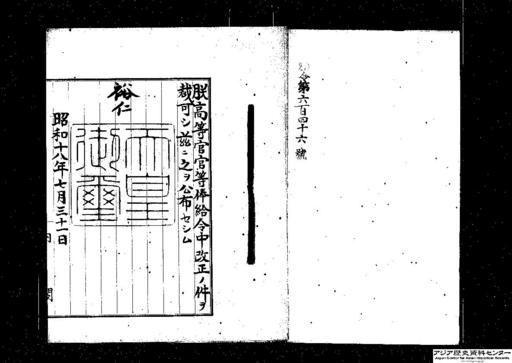 勅令第六百四十六號
朕高等官官等俸給令中改正ノ件ヲ
裁可シ茲ニ之ヲ公布セシム
裕仁
天皇御璽
昭和十八年七月三十一日
内閣
アジア歴史資料センター
Japan Center for Asian Historical Records